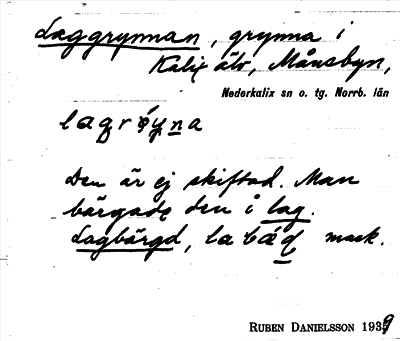 Laggrynnan, grynna i
Kalix älv, Månsbyn,
Nederkalix sn o. tg. Norrb. län
Den är ej skiftad. Man
bärgade den i lag.
Lagbärgd, mask.
RUBEN DANIELSSON 1939